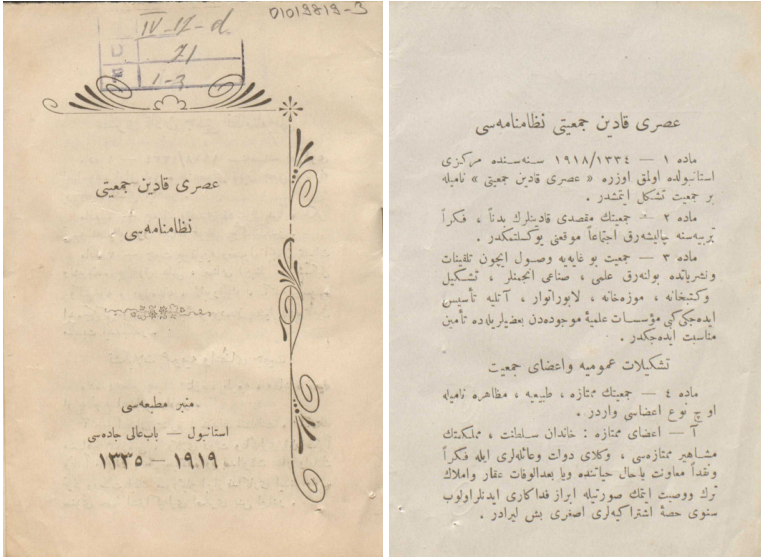 01019819-3
IV-17-d
71
1-3
عصری قادین جمعیتی
نظامنامه‌سی
منبر مطبعه‌سی
استانبول — باب‌عالی جاده‌سی
١٩١٩ — ١٣٣٥
عصری قادین جمعیتی نظامنامه‌سی
ماده ١ — ١٩١٨/١٣٣٤ سنه‌سنده مرکزی
استانبولده اولمق اوزره « عصری قادین جمعیتی » نامیله
بر جمعیت تشکل ایتمشدر .
ماده ٢ — جمعیتك مقصدی قادینلرك بدناً ، فکراً
تربیه‌سنه چالیشه‌رق اجتماعاً موقعنی یوکسلتمکدر .
ماده ٣ — جمعیت بو غایه‌یه وصول ایچون تلقینات
ونشریاتده بولنه‌رق علمی ، صناعی انجمنلر ، تشکیل
وکتبخانه ، موزه‌خانه ، لابوراتوار ، آتلیه تأسیس
ایده‌جکی کبی مؤسسات علمیۀ موجوده‌دن بعضیلریله‌ده تأمین
مناسبت ایده‌جکدر .
تشکیلات عمومیه واعضای جمعیت
ماده ٤ — جمعیتك ممتازه ، طبیعیه ، مظاهره نامیله
اوچ نوع اعضاسی واردر .
آ — اعضای ممتازه : خاندان سلطنت ، مملکتك
مشاهیر ممتازه‌سی ، وکلای دولت وعائله‌لری ایله فکراً
ونقداً معاونت یاحال حیاتنده ویا بعدالوفات عقار واملاك
ترك ووصیت ایتمك صورتیله ابراز فداکاری ایدنلراولوب
سنوی حصۀ اشتراکیه‌لری اصغری بش لیرادر .